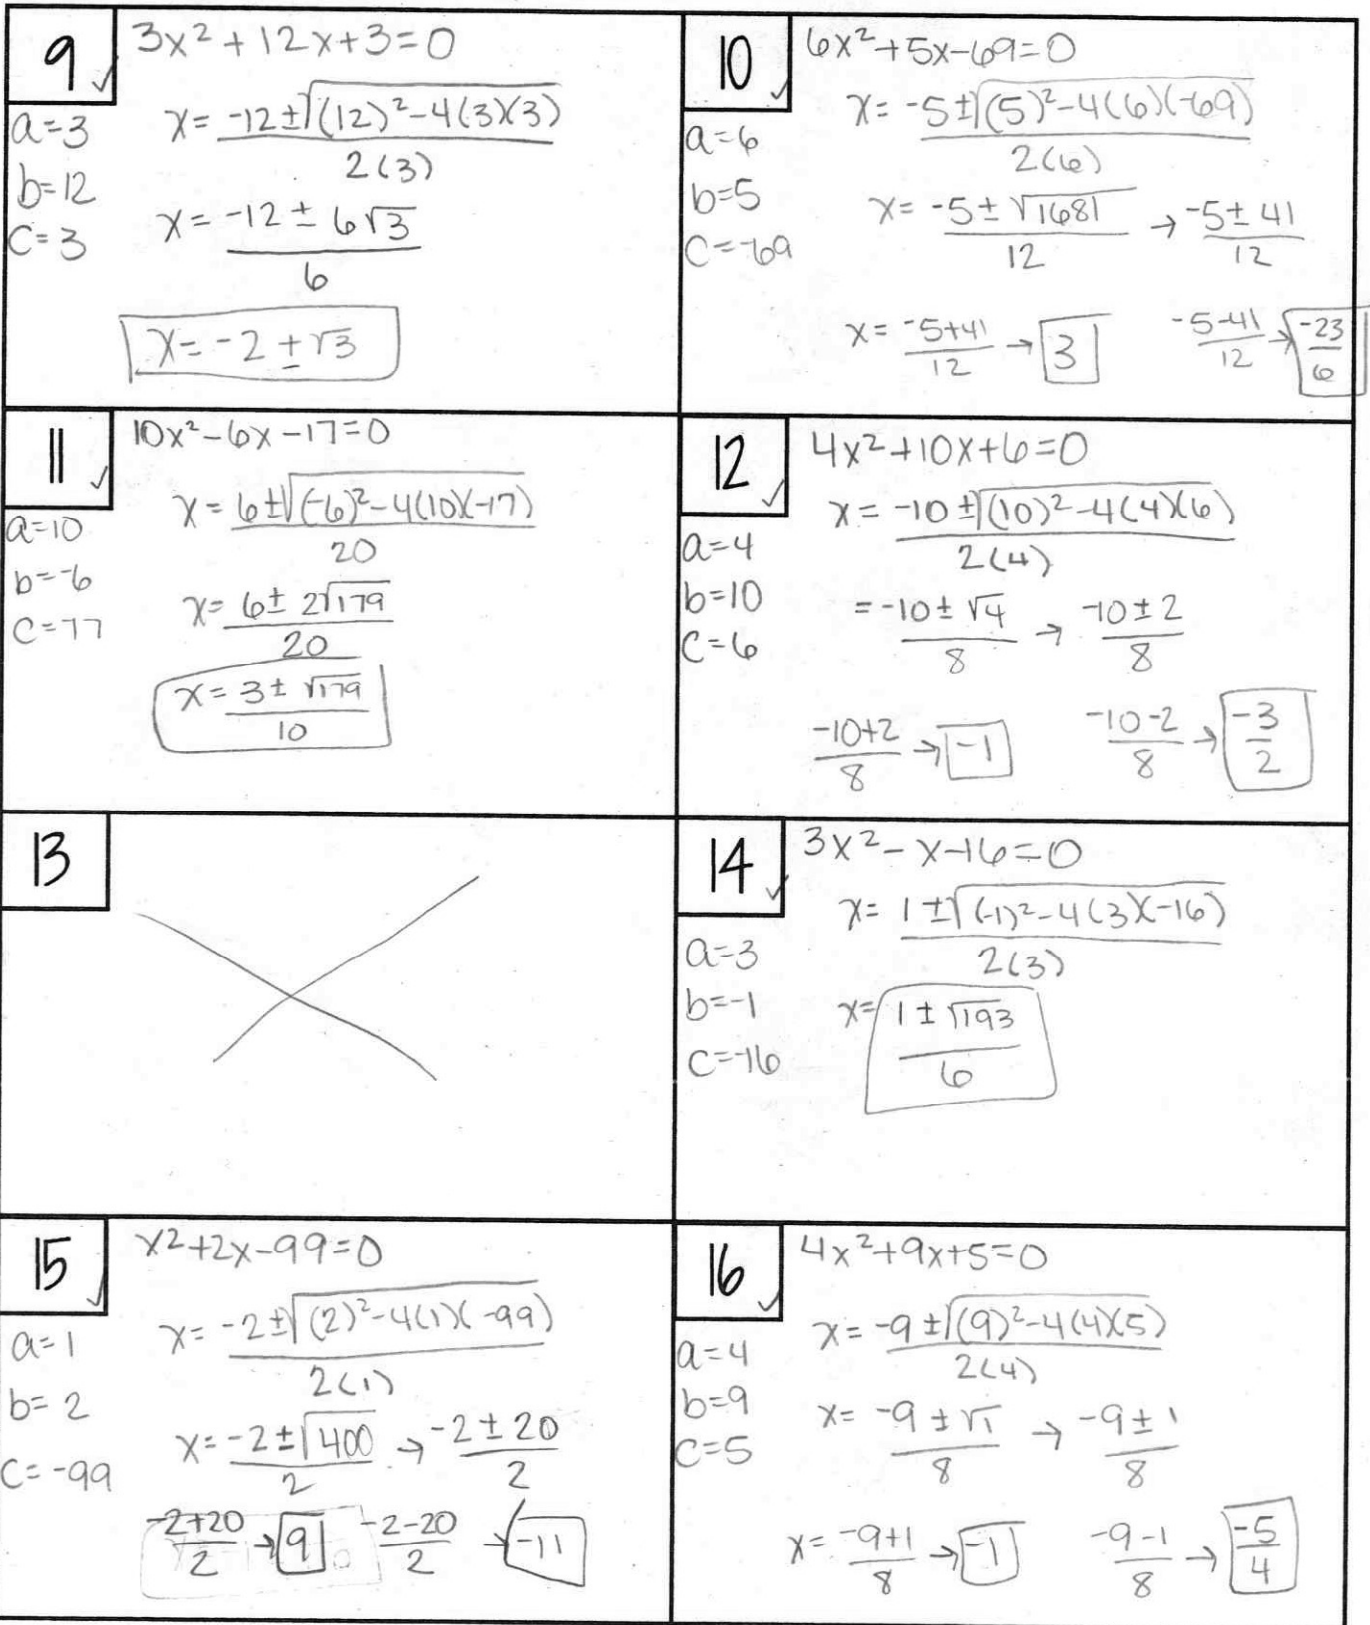 9 ✓
3x² + 12x + 3 = 0
a=3
b=12
c=3
x = (-12 ± √((12)² - 4(3)(3))) / 2(3)
x = (-12 ± 6√3) / 6
x = -2 ± √3
10 ✓
6x² + 5x - 69 = 0
a=6
b=5
c=-69
x = (-5 ± √((5)² - 4(6)(-69))) / 2(6)
x = (-5 ± √1681) / 12 → (-5 ± 41) / 12
x = (-5+41) / 12 → 3   (-5-41) / 12 → -23/6
11 ✓
10x² - 6x - 17 = 0
a=10
b=-6
c=-17
x = (6 ± √((-6)² - 4(10)(-17))) / 20
x = (6 ± 2√179) / 20
x = (3 ± √179) / 10
12 ✓
4x² + 10x + 6 = 0
a=4
b=10
c=6
x = (-10 ± √((10)² - 4(4)(6))) / 2(4)
= (-10 ± √4) / 8 → (-10 ± 2) / 8
(-10+2) / 8 → -1   (-10-2) / 8 → -3/2
13
14 ✓
3x² - x - 16 = 0
a=3
b=-1
c=-16
x = (1 ± √((-1)² - 4(3)(-16))) / 2(3)
x = (1 ± √193) / 6
15 ✓
x² + 2x - 99 = 0
a=1
b=2
c=-99
x = (-2 ± √((2)² - 4(1)(-99))) / 2(1)
x = (-2 ± √400) / 2 → (-2 ± 20) / 2
(-2+20) / 2 → 9   (-2-20) / 2 → -11
16 ✓
4x² + 9x + 5 = 0
a=4
b=9
c=5
x = (-9 ± √((9)² - 4(4)(5))) / 2(4)
x = (-9 ± √1) / 8 → (-9 ± 1) / 8
x = (-9+1) / 8 → -1   (-9-1) / 8 → -5/4